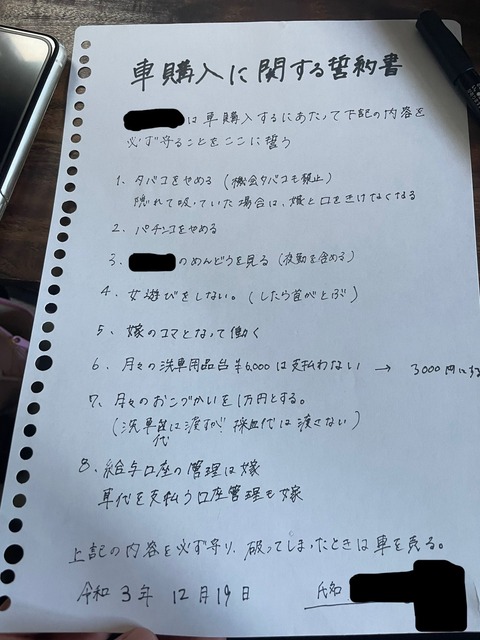 車購入に関する誓約書
は車購入するにあたって下記の内容を
必ず守ることをここに誓う
1、タバコをやめる(機会タバコも禁止)
隠れて吸っていた場合は、嫁と口をきけなくなる
2、パチンコをやめる
3、のめんどうを見る(夜勤を含める)
4、女遊びをしない。(したら首がとぶ)
5、嫁のコマとなって働く
6、月々の洗車用品台¥6,000は支払わない → 3000円にする
7、月々のおこづかいを1万円とする。
(洗車代は渡すが、採血代は渡さない)
8、給与口座の管理は嫁
車代を支払う口座管理も嫁
上記の内容を必ず守り、破ってしまったときは車を売る。
令和3年12月19日
氏名